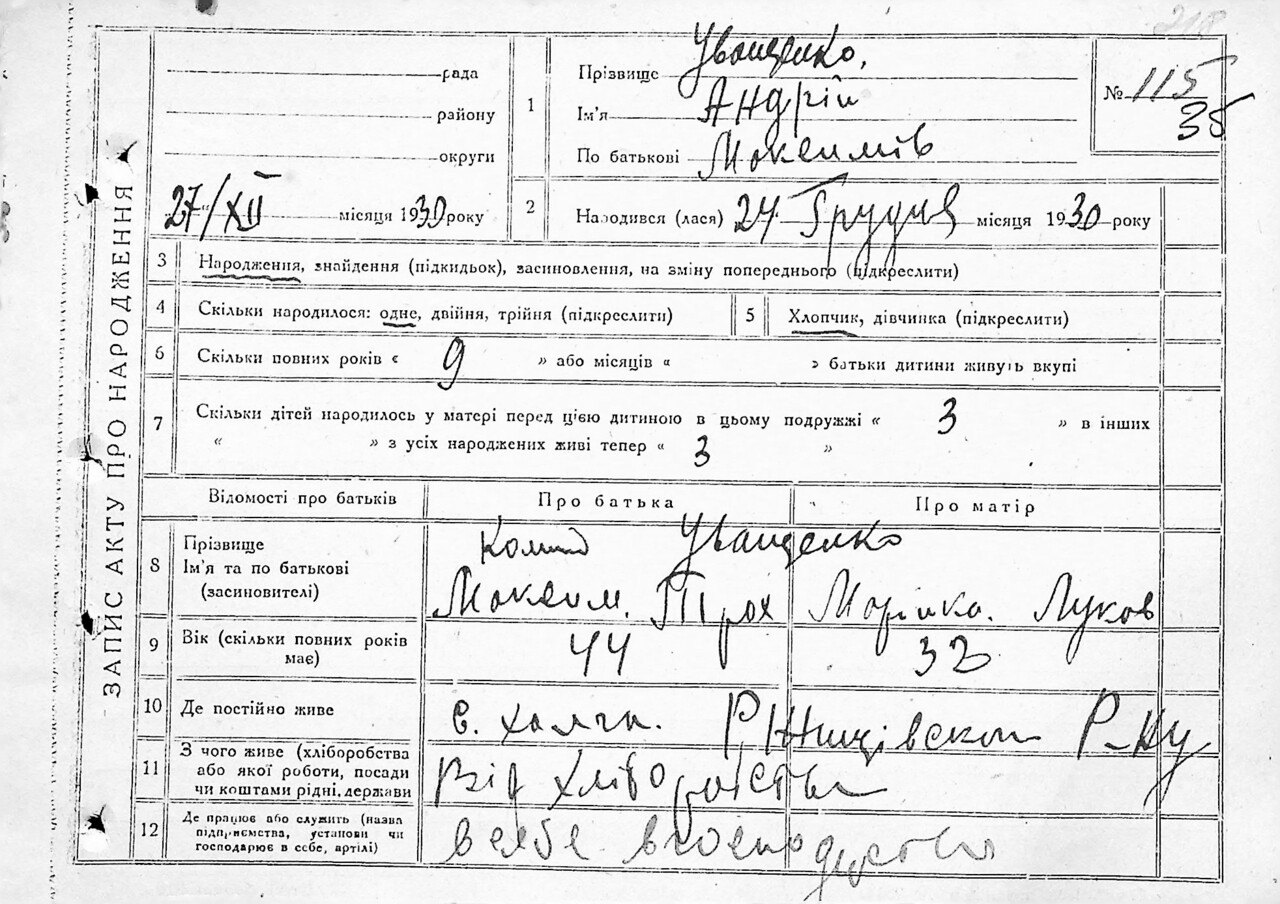 218
ЗАПИС АКТУ ПРО НАРОДЖЕННЯ
рада
району
округи
27/XII місяця 1930 року
1
Прізвище Уващенко,
Ім'я Андрій
По батькові Максимів
№ 115
35
2
Народився (лася) 24 Грудня місяця 1930 року
3 Народження, знайдення (підкидьок), засиновлення, на зміну попереднього (підкреслити)
4 Скільки народилося: одне, двійня, трійня (підкреслити)
5 Хлопчик, дівчинка (підкреслити)
6 Скільки повних років « 9 » або місяців « » батьки дитини живуть вкупі
7 Скільки дітей народилось у матері перед цією дитиною в цьому подружжі « 3 » в інших
« » з усіх народжених живі тепер « 3 »
Відомості про батьків Про батька Про матір
8 Прізвище
Ім'я та по батькові
(засиновителі)
Уващенко
Максим. Трох Марійка. Луков
9 Вік (скільки повних років
має)
44 33
10 Де постійно живе
с. Р, Жищівском Р-ну
11 З чого живе (хліборобства
або якої роботи, посади
чи коштами рідні, держави
Від хліборобства
12 Де працює або служить (назва
підприємства, установи чи
господарює в себе, артілі)
в себе в